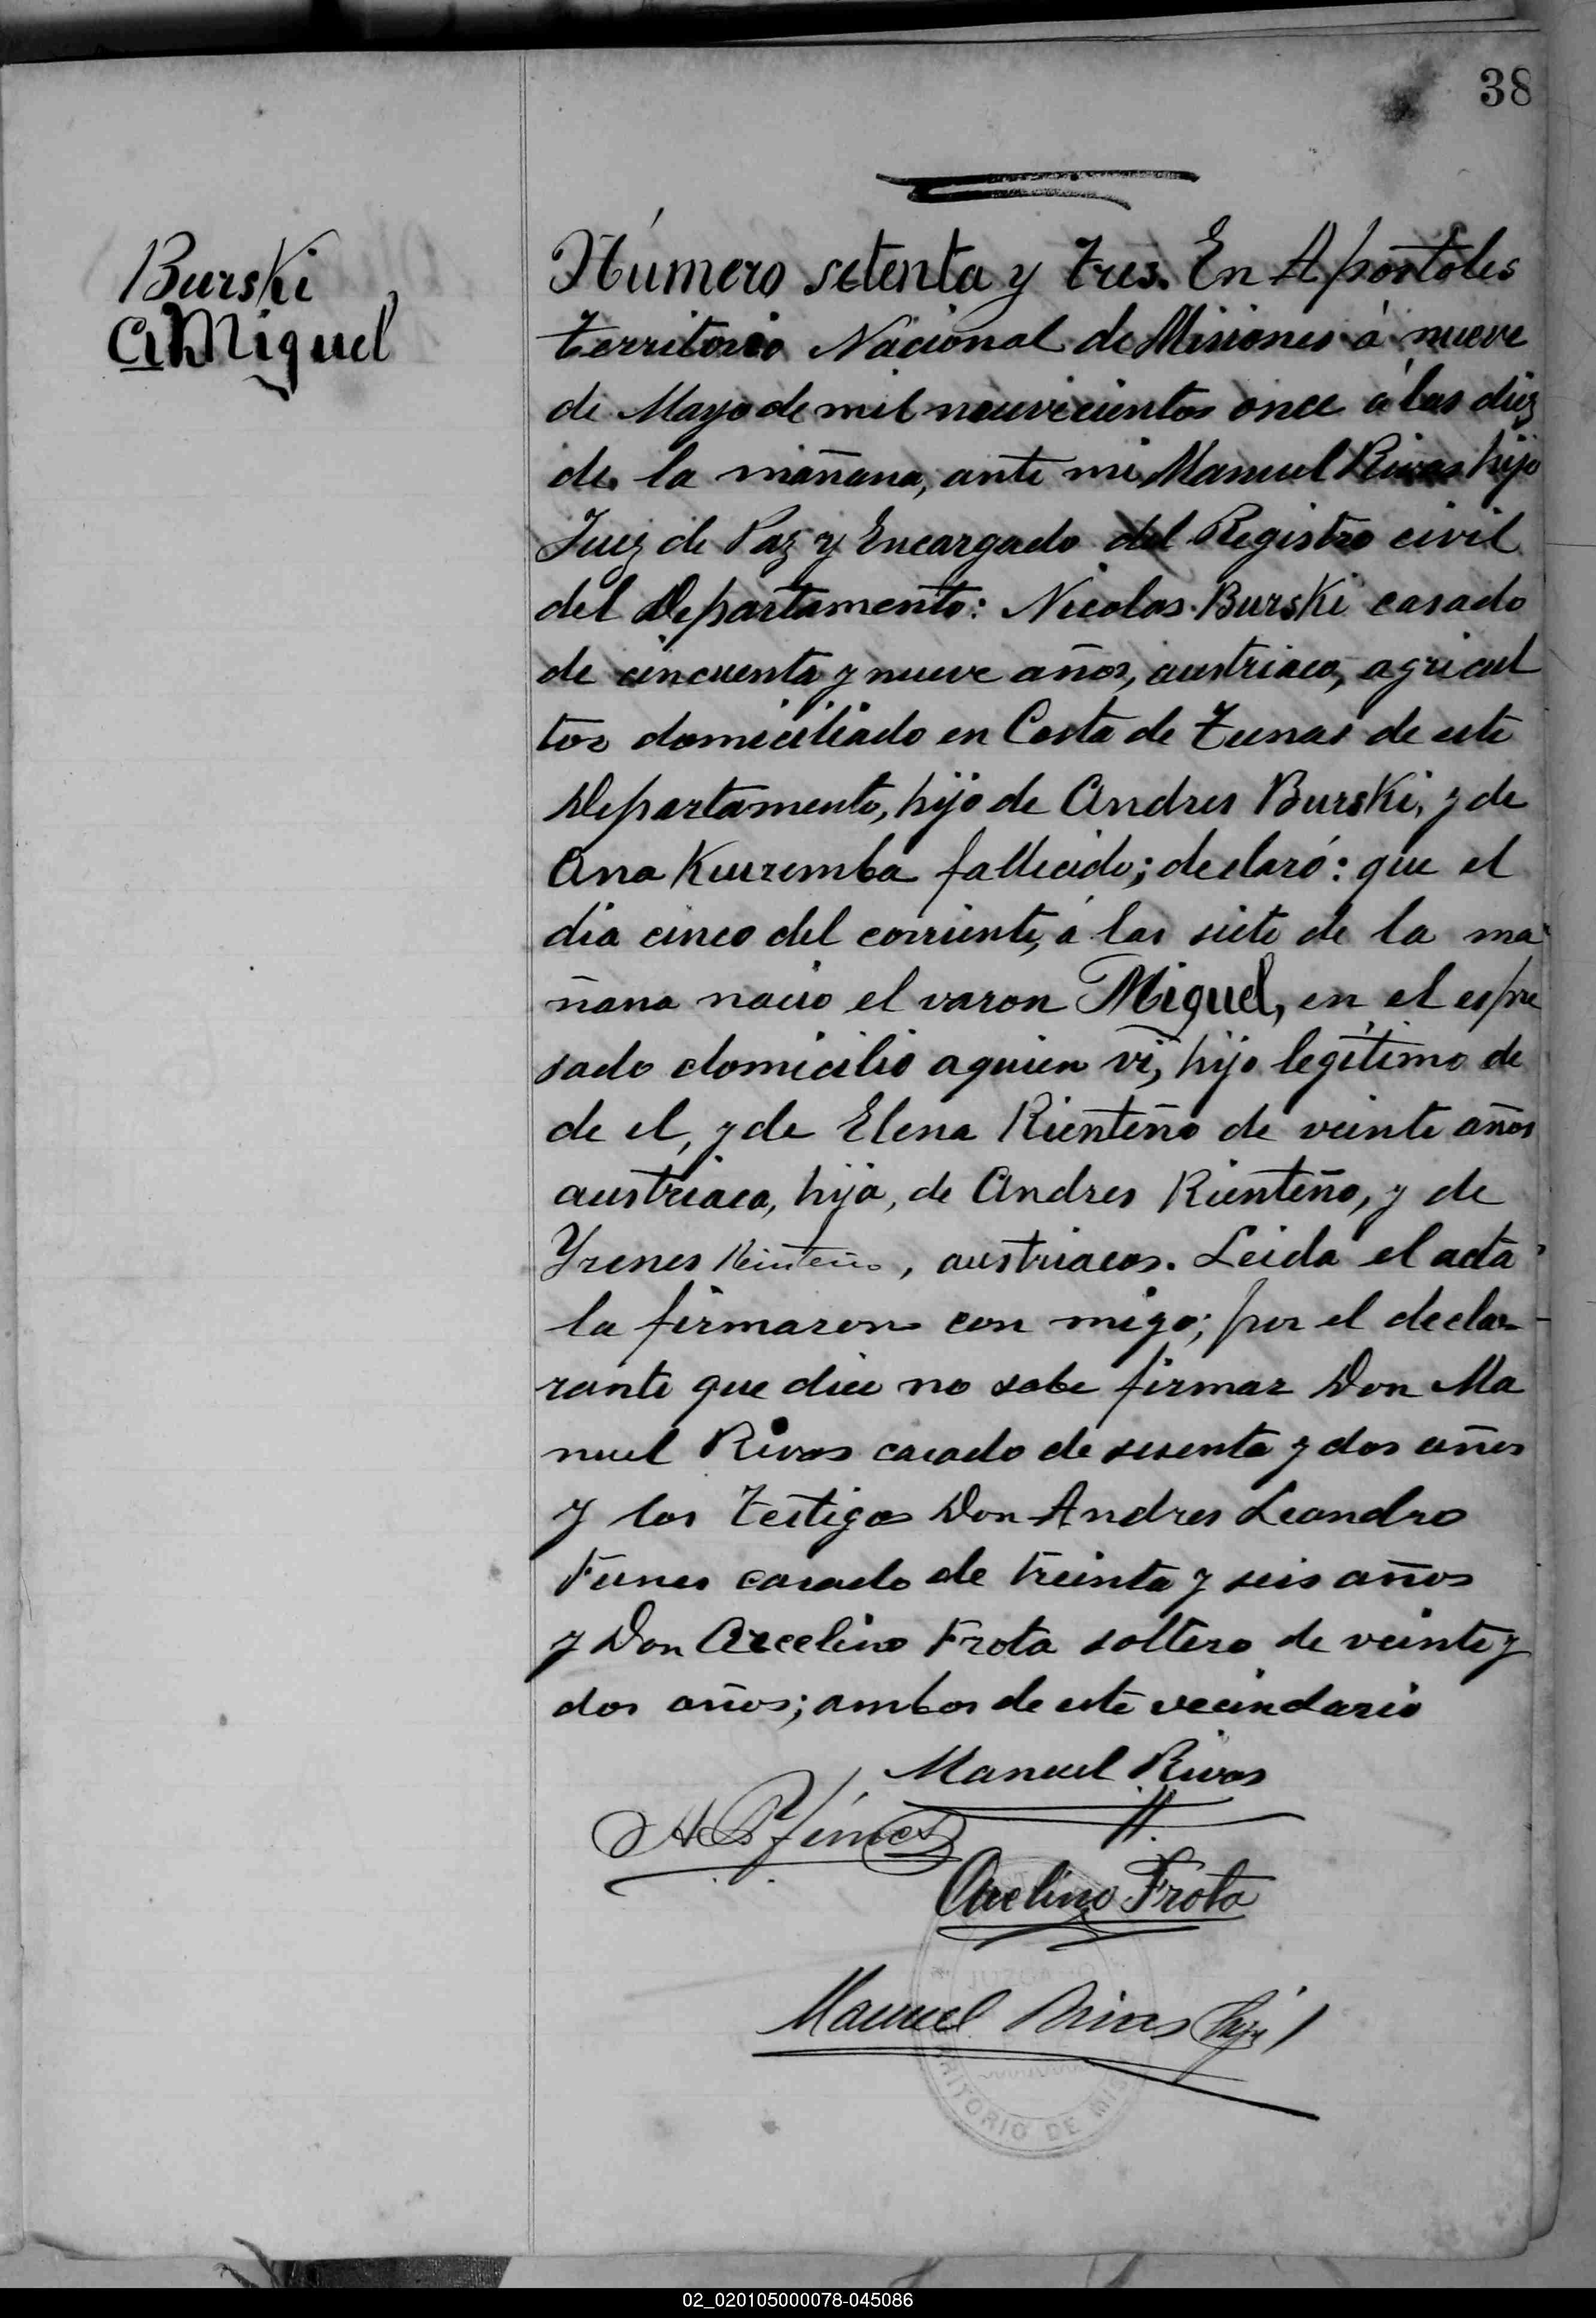 38
Burski
Miguel
Número setenta y tres. En Apostoles
territorio Nacional de Misiones á nueve
de Mayo de mil nouvecientos once á las diez
de la mañana, ante mi Manuel Rivas hijo
Juez de Paz y Encargado del Registro civil
del Departamento: Nicolas Burski casado
de cincuenta y nueve años, austriaco, agricul
tor domiciliado en Costa de Tunas de este
Departamento, hijo de Andres Burski, y de
Ana Kuuremba fallecido; declaró: que el
dia cinco del corriente, á las siete de la ma
ñana nacio el varon Miguel, en el espre
sado domicilio aquien vi, hijo legítimo de
de el, y de Elena Rienteño de veinte años
austriaca, hija, de Andres Rienteño, y de
Yrenes, austriacos. Leida el acta
la firmaron con migo; por el decla-
rante que dice no sabe firmar Don Ma
nuel Rivas casado de sesenta y dos años
y los testigos Don Andres Leandro
Funes casado de treinta y seis años
y Don Arcelino Frota soltero de veinte y
dos años; ambos de este vecindario
Manuel Rivas
Funes
Arcelino Frota
JUZGADO
Manuel Rivas hijo
TERRITORIO DE MIS
02_020105000078-045086